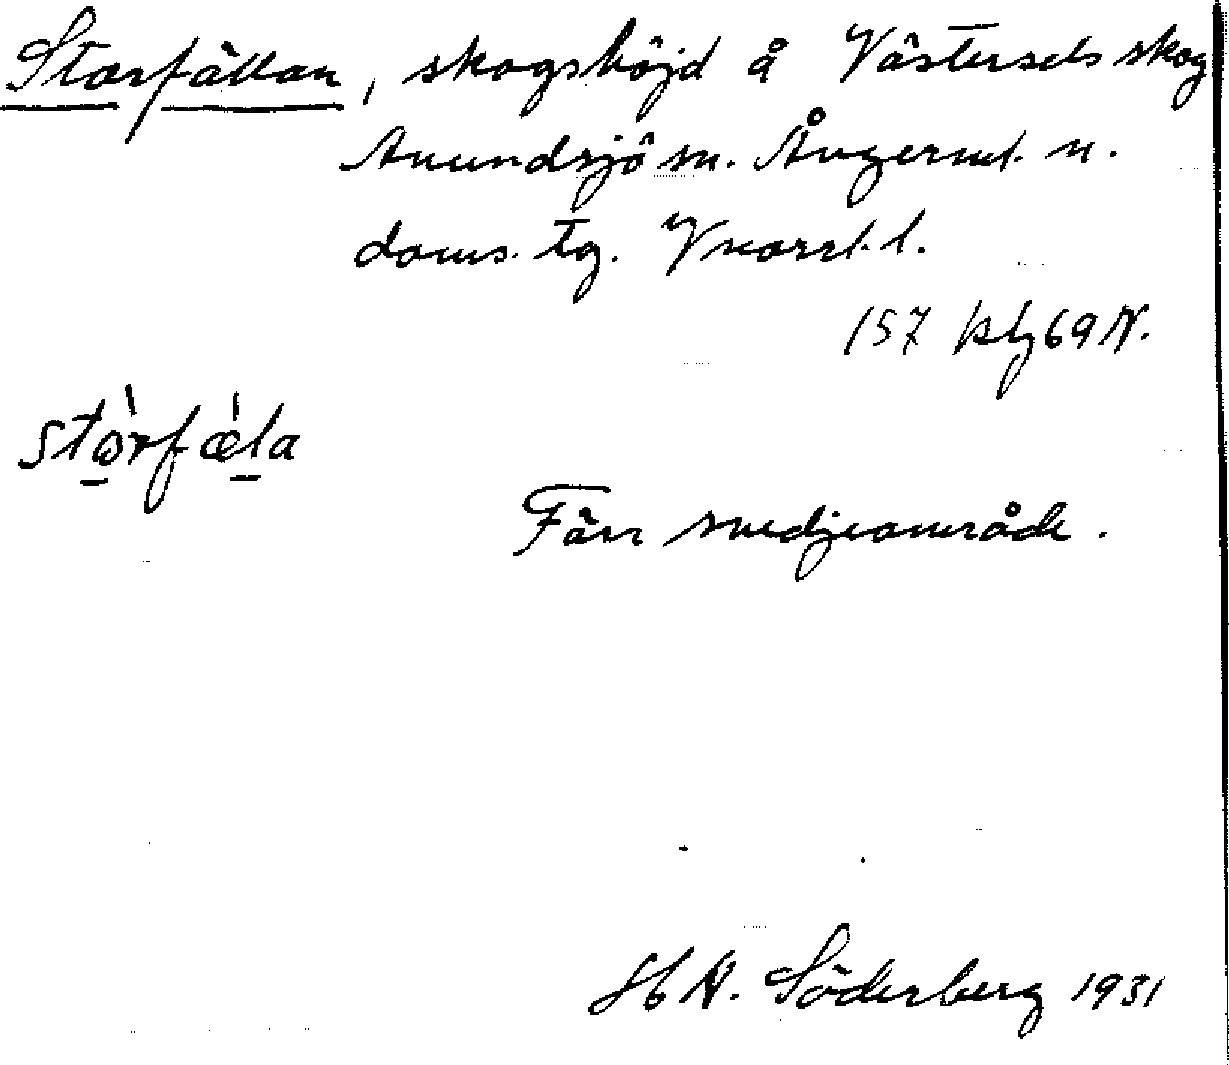 Storfällan, skogshöjd å Västersels skog
Anundsjö sn. Ångerml. n.
doms. tg. Vnorrl. l.
157 kbg 69 N.
stòrfæ̀la
Förr svedjeområde.
H. N. Söderberg 1931